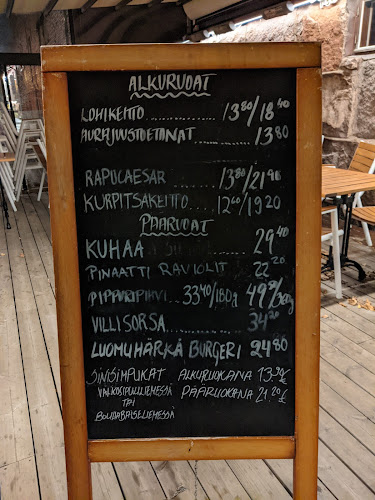 ALKURUOAT
LOHIKEITTO ........ 13⁸⁰/18⁴⁰
AURAJUUSTOETANAT ..... 13⁸⁰
RAPUCAESAR ........ 13⁸⁰/21⁴⁰
KURPITSAKEITTO ..... 12⁶⁰/19²⁰
PÄÄRUOAT
KUHAA ........ 29⁴⁰
PINAATTI RAVIOLIT ... 22²⁰
PIPPURIPIHVI .. 33⁴⁰/180g
VILLISORSA ........ 34²⁰
LUOMUHÄRKÄ BURGERI 24⁸⁰
SINISIMPUKAT ALKURUOKANA 13,90€
VALKOSIPULILIEMESSÄ PÄÄRUOKANA 21,20€
TAI
BOUILLABAISELIEMESSÄ